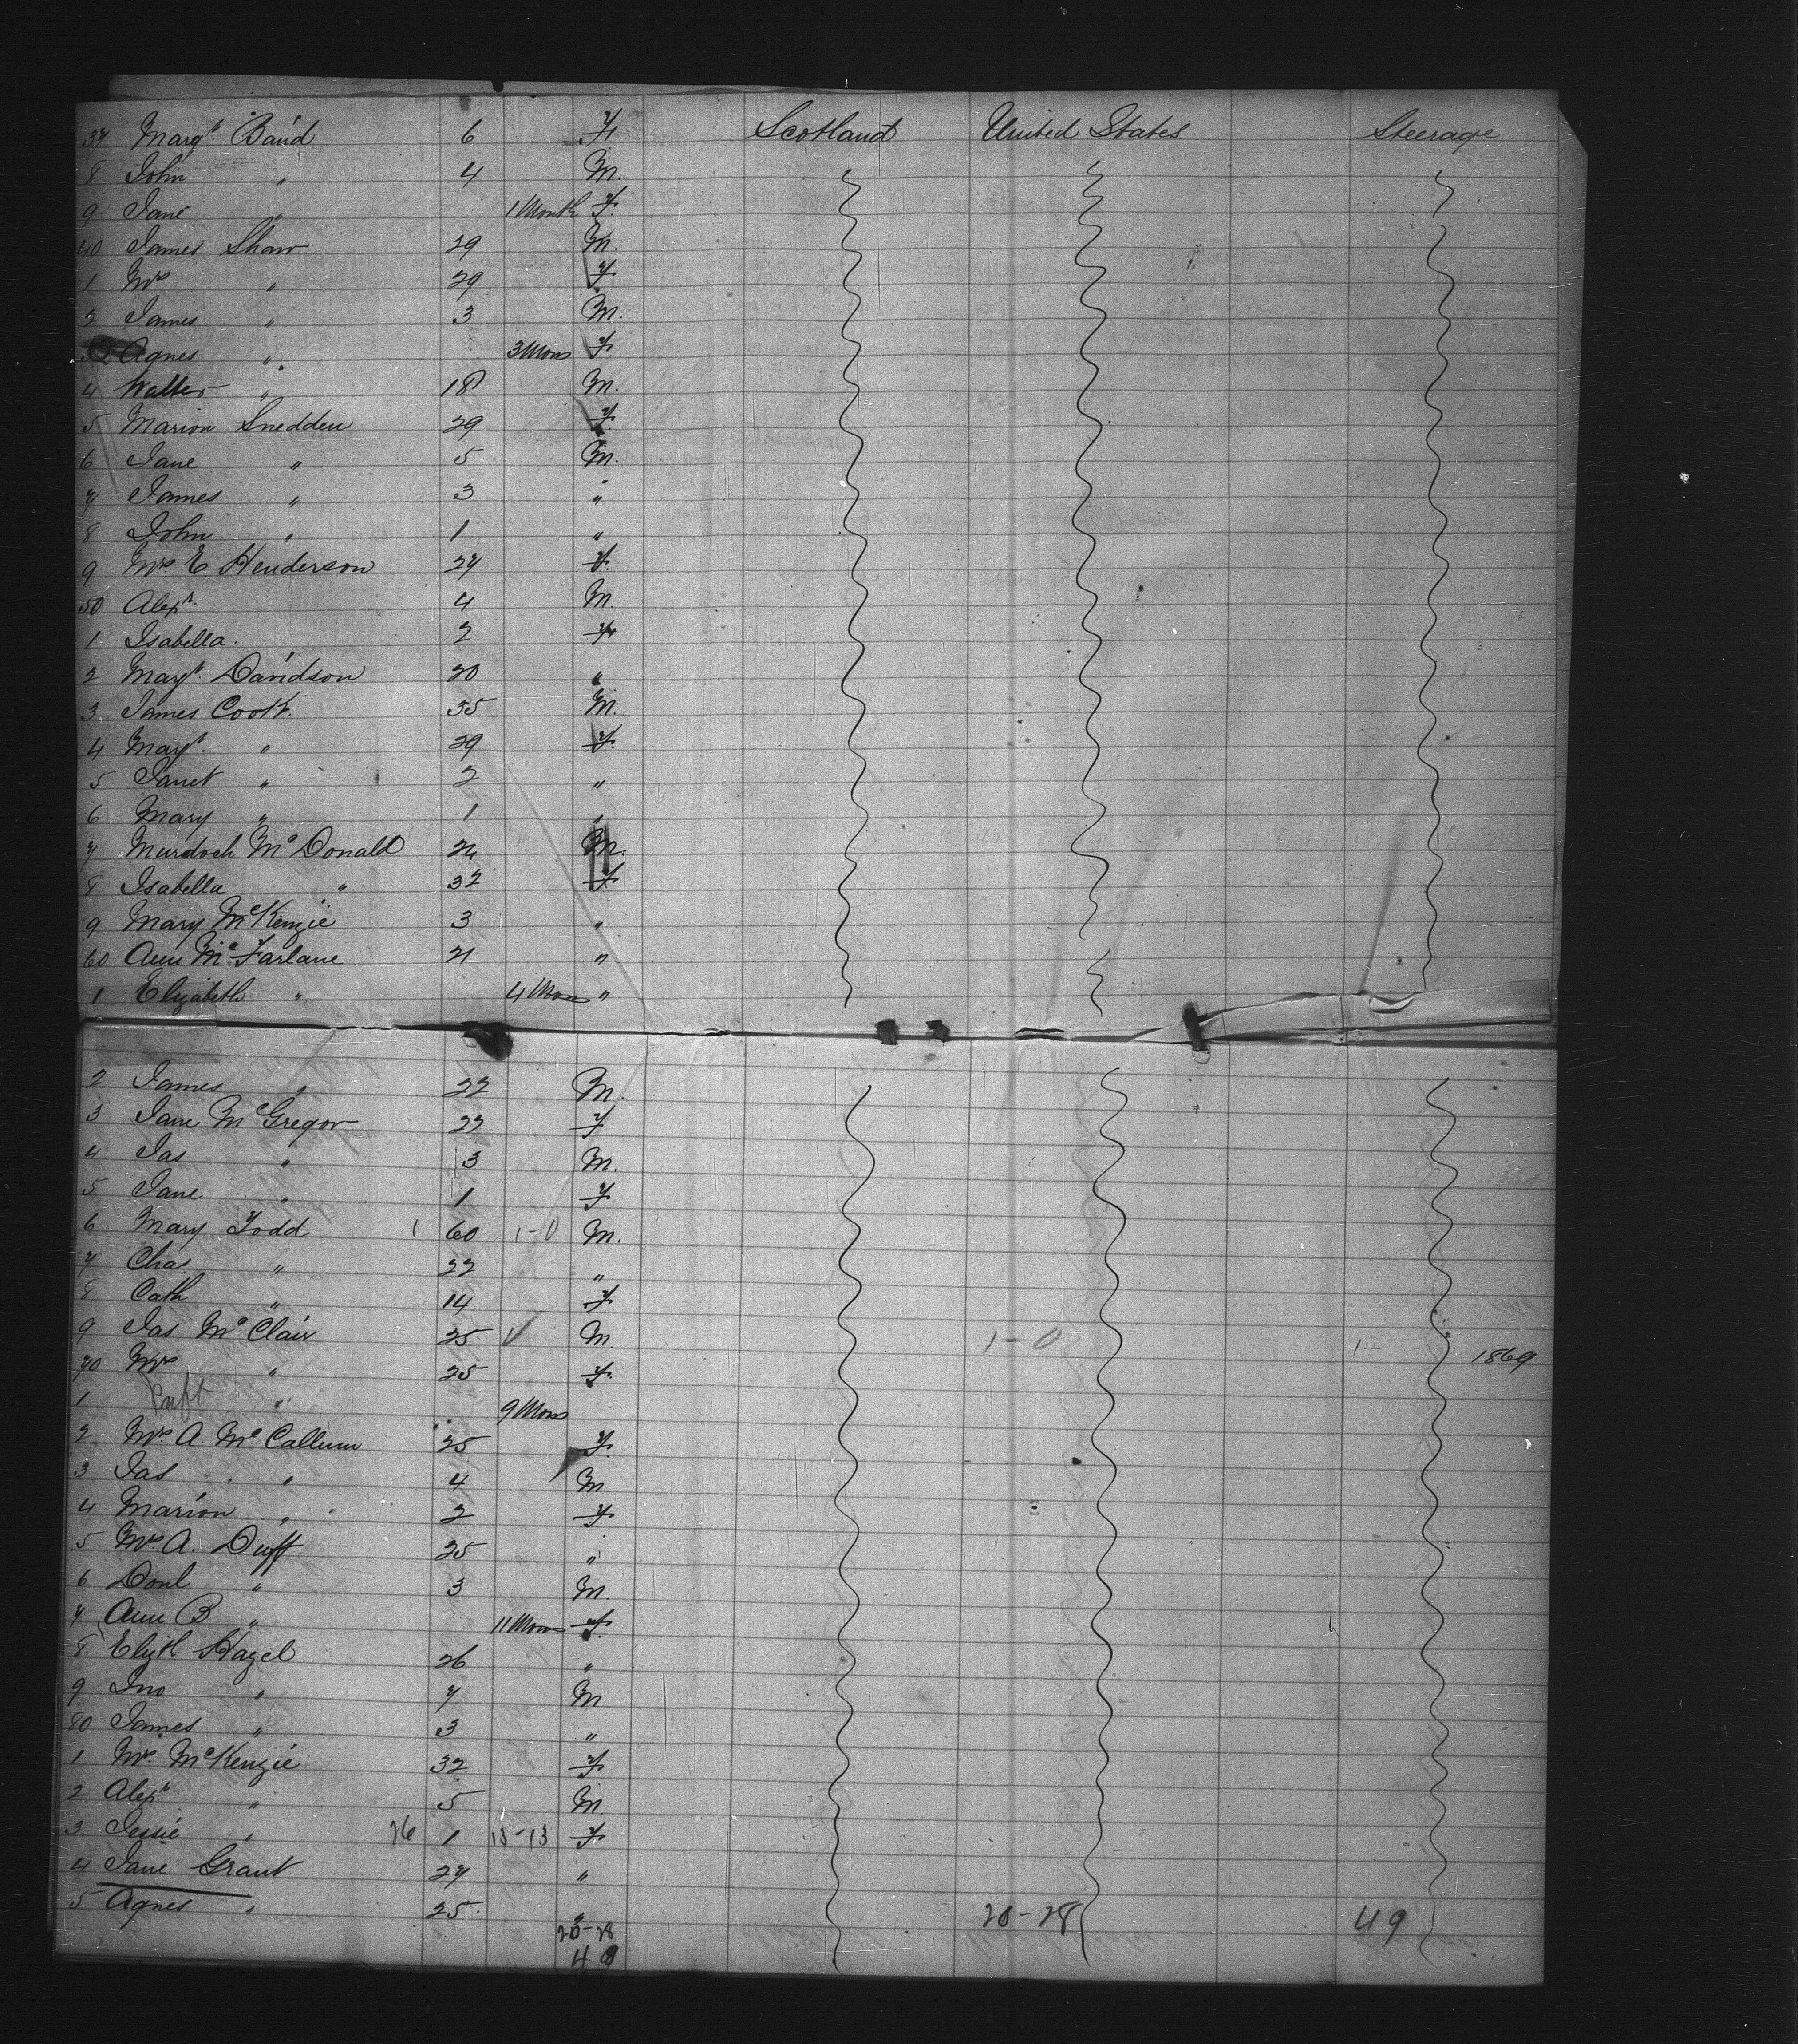 37 Margt. Baird 6 F. Scotland United States Steerage
8 John " 4 M.
9 Jane " 1 Month F.
40 James Shaw 29 M.
1 Mrs " 29 F
2 James " 3 M.
Agnes " 3 Mons F
4 Walter " 18 M.
5 Marion Snedden 29 F.
6 Jane " 5 M.
7 James " 3 "
8 John " 1 "
9 Mrs E. Henderson 27 F.
50 Alexr. 4 M.
1 Isabella. 2 F
2 Margt. Davidson 20 "
3 James Cook. 35 M.
4 Margt. " 29 F.
5 Janet " 2 "
6 Mary " 1 "
7 Murdoch McDonald M.
8 Isabella " 32 F
9 Mary McKenzie 3 "
60 Ann McFarlane 21 "
1 Elizabeth " 4 Mons "
2 James " 22 M.
3 Jane McGregor 22 F
4 Jas " 3 M.
5 Jane " 1 F
6 Mary Todd 1 60 1-0 M.
7 Chas. " 22 "
8 Cath " 14 F
9 Jas McClair 25 M. 1-0 1-
70 Mrs " 25 F. 1869
1 " 9 Mons
2 Mrs. A. McCallum 25 F.
3 Jas " 4 M
4 Marion " 2 F
5 Mrs. A. Duff 25 "
6 Donl " 3 M.
7 Ann B " 11 Mons F.
8 Elizth Hazel 26 "
9 Jno " 7 M
80 James " 3 "
1 Mrs. McKenzie 32 F
2 Alexr " 5 M.
3 Jessie " 26 1 13-13 F
4 Jane Grant 27 "
5 Agnes " 25. "
20-28 20-28 49
49